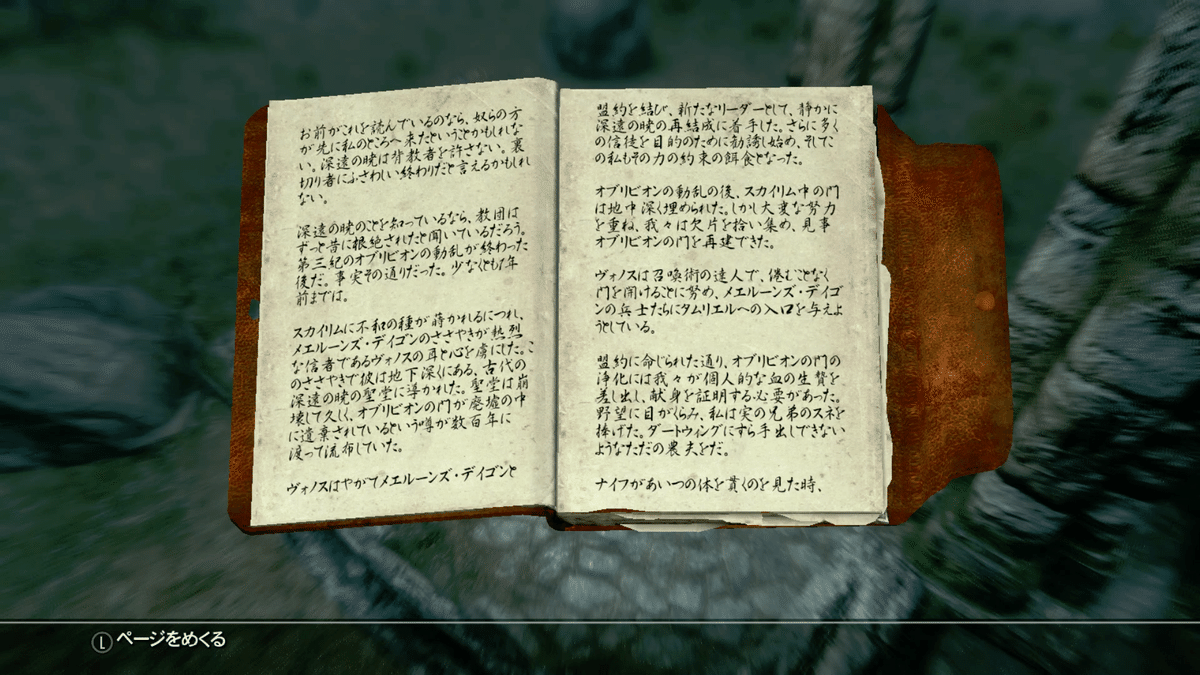 お前がこれを読んでいるのなら、奴らの方
が先に私のところへ来たということかもしれな
い。深遠の暁は背教者を許さない。裏
切り者にふさわしい終わりだと言えるかもしれ
ない。
深遠の暁のことを知っているなら、教団は
ずっと昔に根絶されたと聞いているだろう。
第三紀のオブリビオンの動乱が終わった
後だ。事実その通りだった。少なくとも1年
前までは。
スカイリムに不和の種が蒔かれるにつれ、
メエルーンズ・デイゴンのささやきが熱烈
な信者であるヴォノスの耳と心を虜にした。こ
のささやきで彼は地下深くにある、古代の
深遠の暁の聖堂に導かれた。聖堂は崩
壊して久しく、オブリビオンの門が廃墟の中
に遺棄されているという噂が数百年に
渡って流布していた。
ヴォノスはやがてメエルーンズ・デイゴンと
盟約を結び、新たなリーダーとして、静かに
深遠の暁の再結成に着手した。さらに多く
の信徒を目的のために勧誘し始め、そして
の私もその力の約束の餌食となった。
オブリビオンの動乱の後、スカイリム中の門
は地中深く埋められた。しかし大変な努力
を重ね、我々は欠片を拾い集め、見事
オブリビオンの門を再建できた。
ヴォノスは召喚術の達人で、倦むことなく
門を開けることに努め、メエルーンズ・デイゴ
ンの兵士たちにタムリエルへの入口を与えよ
うとしている。
盟約に命じられた通り、オブリビオンの門の
浄化には我々が個人的な血の生贄を
差し出し、献身を証明する必要があった。
野望に目がくらみ、私は実の兄弟のスネを
捧げた。ダートウィングにすら手出しできない
ようなただの農夫をだ。
ナイフがあいつの体を貫くのを見た時、
Ⓛページをめくる